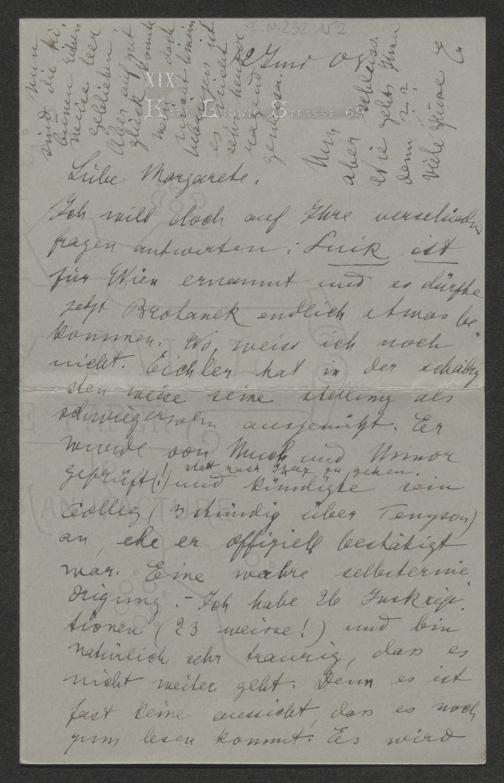 I.N. 232.152
Juni 08
XIX
Karl Ludwig Strasse 69
Liebe Margarete.
Ich will doch auf Ihre verschieden
fragen antworten: Luik ist
für Wien ernannt und es dürfte
jetzt Brotanek endlich etwas be
kommen. Wo, weiss ich noch
nicht. Eichler hat in der schäbig
sten weise seine stellung als
schwiegersohn ausgenützt. Er
wurde von Much und Minor
statt nach Graz zu gehen.
geprüft(!) und kündigte sein
Colleg (3 stündig über Tenyson)
an, ehe er offiziell bestätigt
war. Eine wahre selbsternie
drigung. - Ich habe 26 Inskrip
tionen (23 weisse!) und bin
natürlich sehr traurig, dass es
nicht weiter geht. Denn es ist
fast keine aussicht, dass es noch
zum lesen kommt. Es wird
nun
sind die
bienen
weise leer
geblieben.
Aber auf gut
glück konnte
man doch
nicht
Übrigens ist
es
sehr
gewesen.
Nun
aber schluss.
Wie geht's Ihnen
denn??
Viele Grüsse